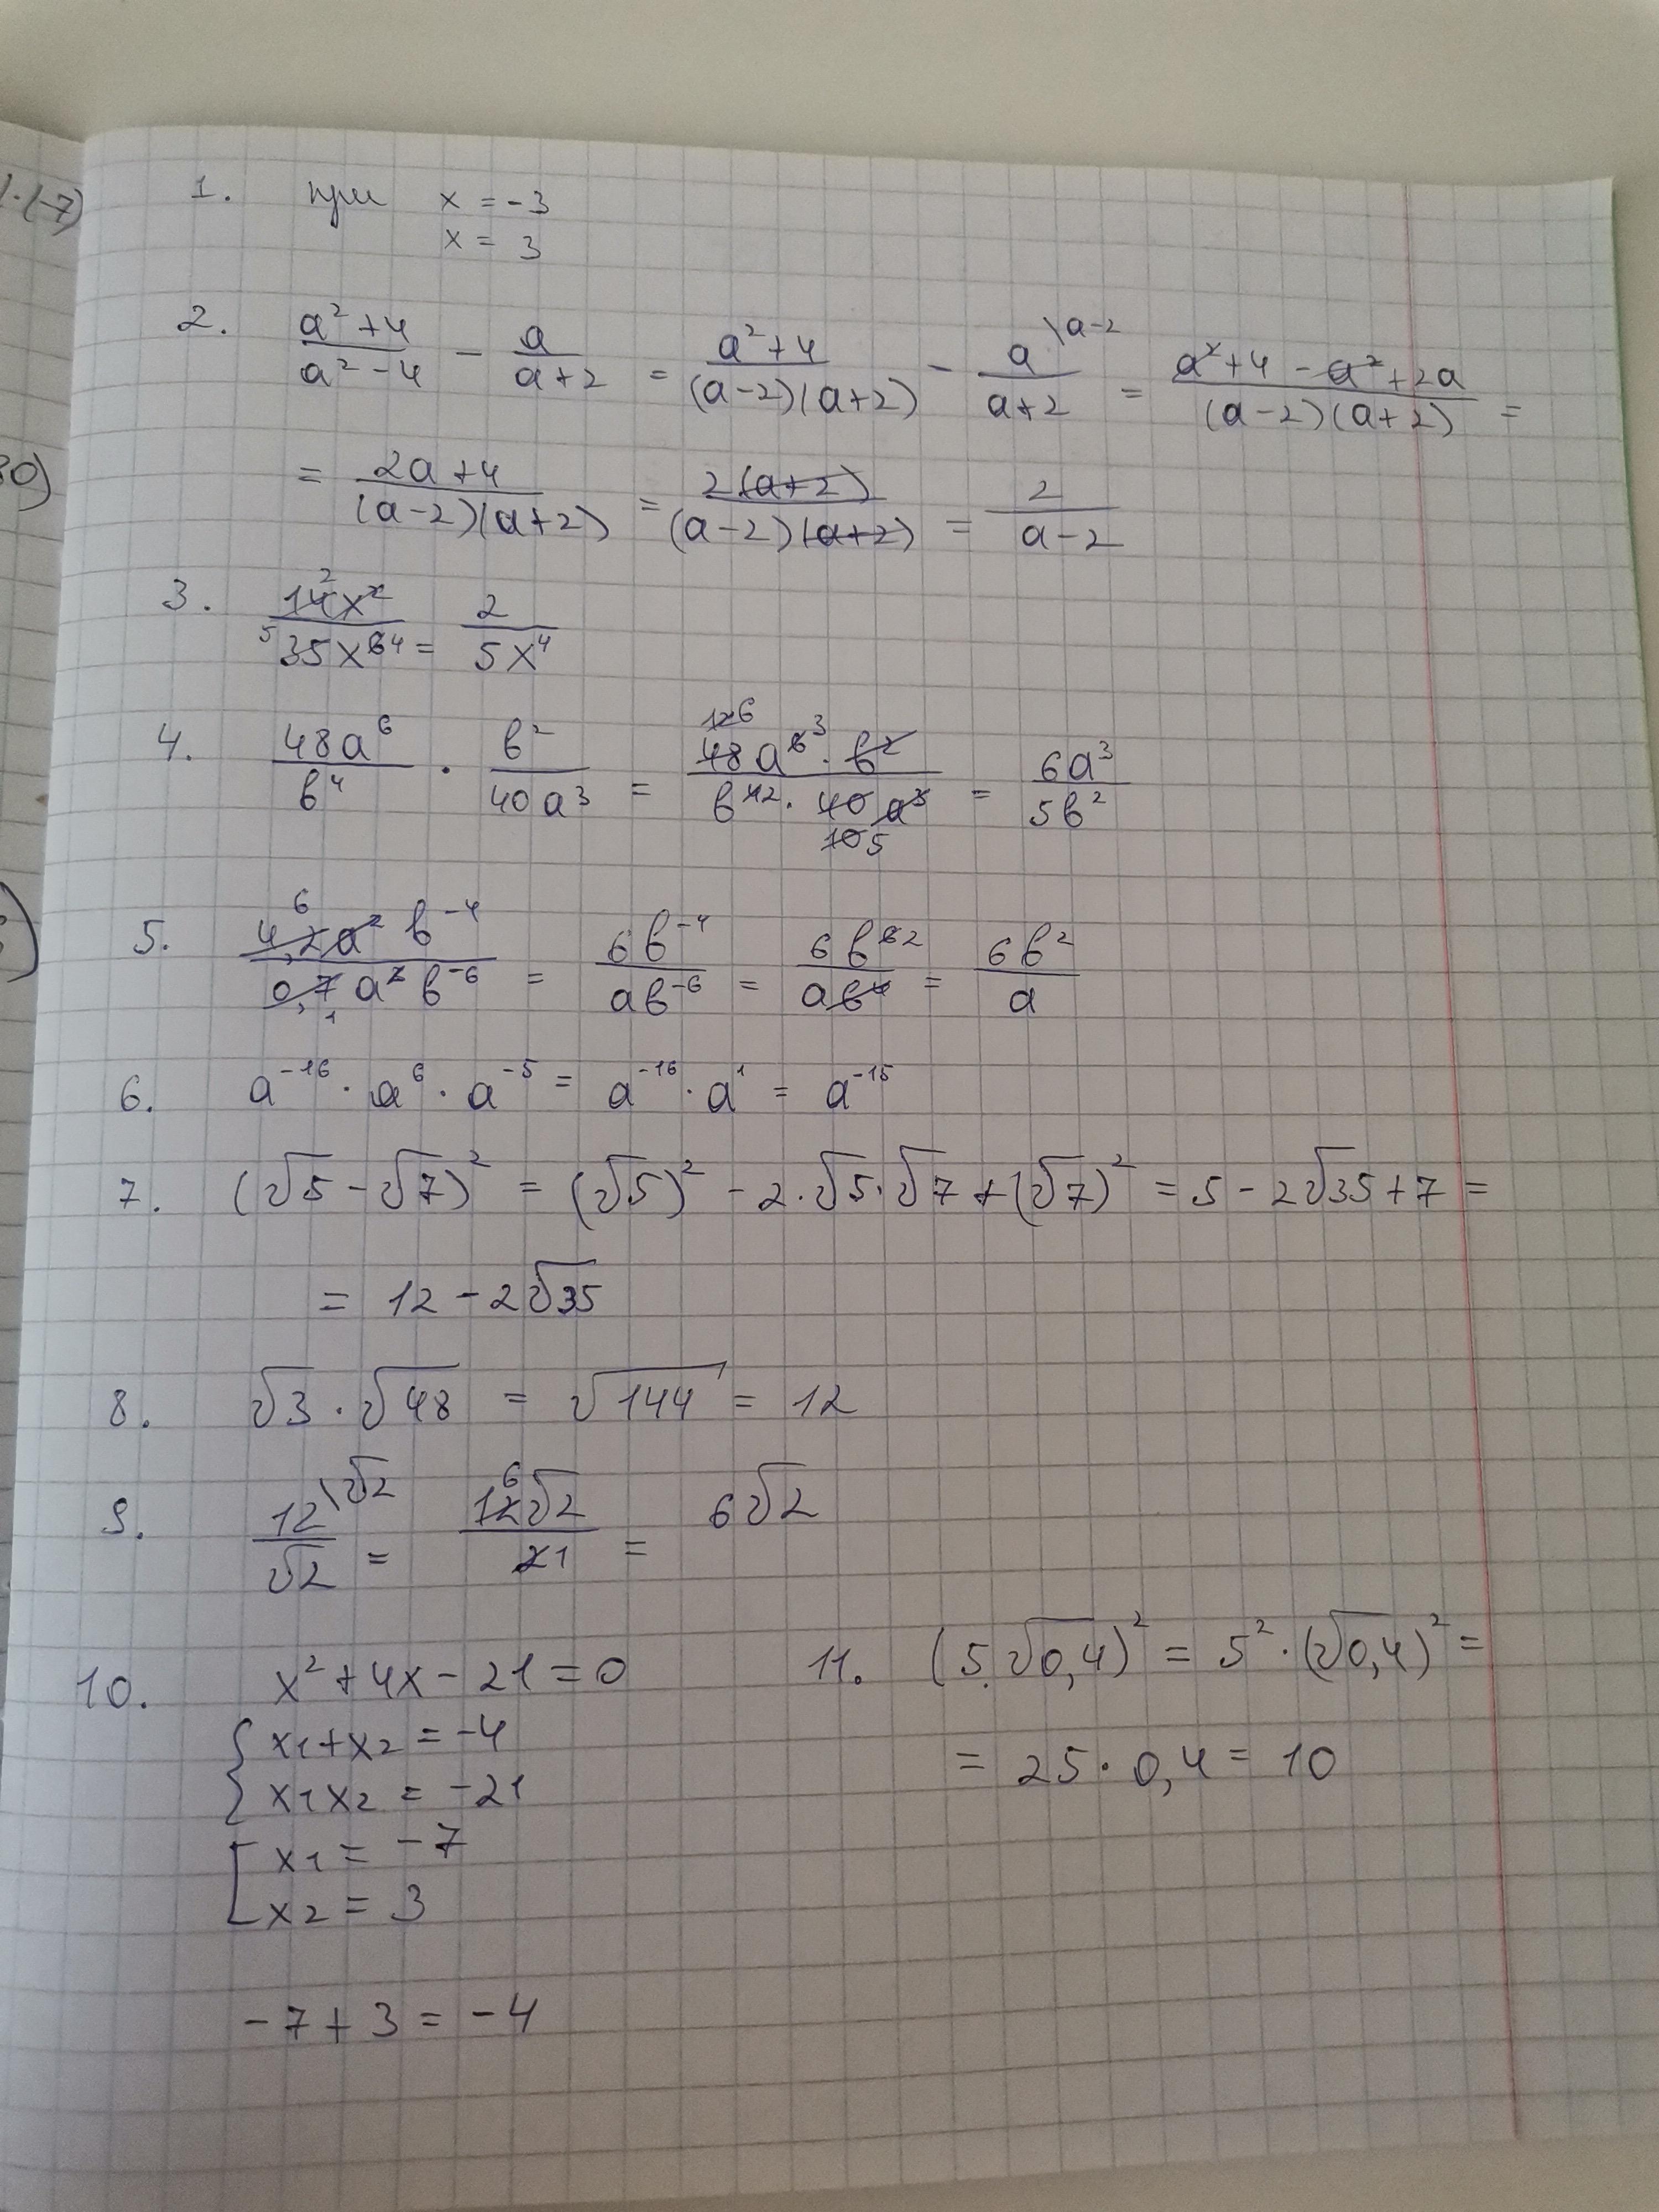 1. при x = -3
x = 3
2. (a²+4)/(a²-4) - a/(a+2) = (a²+4)/((a-2)(a+2)) - a\a-2/(a+2) = (a²+4-a²+2a)/((a-2)(a+2)) =
= (2a+4)/((a-2)(a+2)) = 2(a+2)/((a-2)(a+2)) = 2/(a-2)
3. 14x²/35x⁶ = 2/5x⁴
4. 48a⁶/b⁴ · b²/40a³ = 48a⁶·b²/b⁴·40a³ = 6a³/5b²
5. 4,2a²b⁻⁴/0,7a²b⁻⁶ = 6b⁻⁴/ab⁻⁶ = 6b⁶/ab⁴ = 6b²/a
6. a⁻¹⁶ · a⁶ · a⁻⁵ = a⁻¹⁶ · a¹ = a⁻¹⁵
7. (√5 - √7)² = (√5)² - 2·√5·√7 + (√7)² = 5 - 2√35 + 7 =
= 12 - 2√35
8. √3 · √48 = √144 = 12
9. 12\√2/√2 = 12√2/2 = 6√2
10. x² + 4x - 21 = 0
x1 + x2 = -4
x1x2 = -21
x1 = -7
x2 = 3
-7 + 3 = -4
11. (5√0,4)² = 5² · (√0,4)² =
= 25 · 0,4 = 10